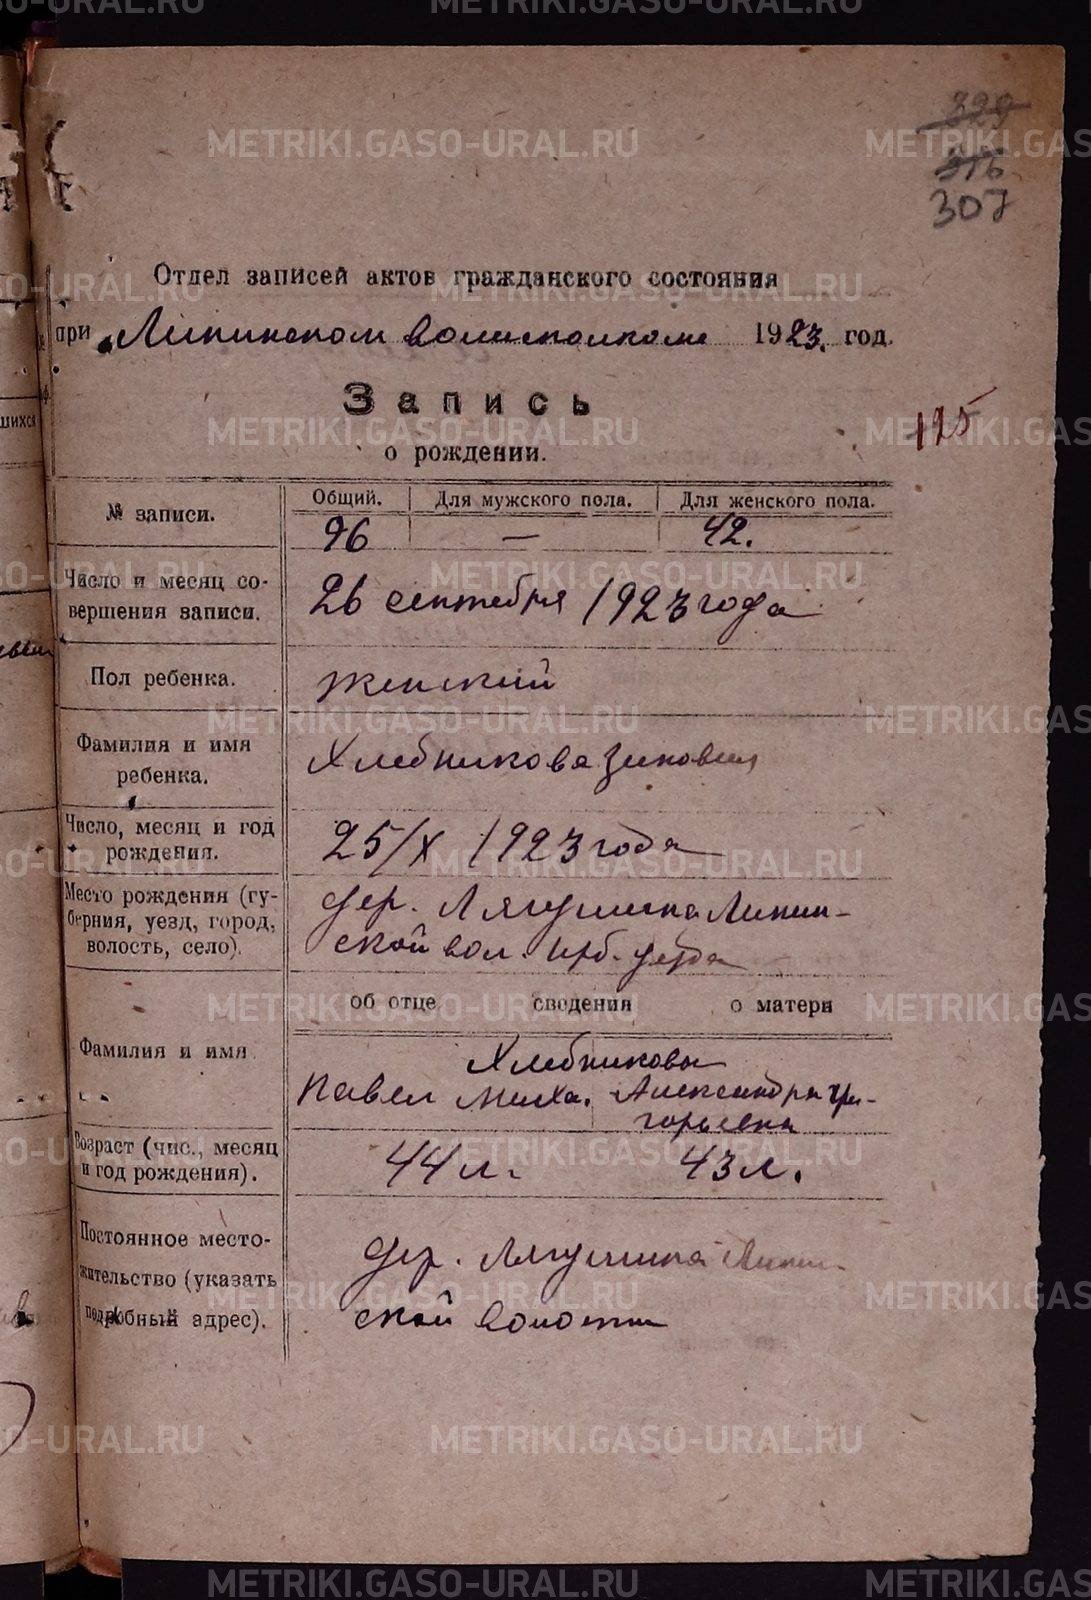 329
316
307
Отдел записей актов гражданского состояния
при Липинском волисполкоме 1923. год.
Запись
о рождении.
125
№ записи.
Общий. Для мужского пола. Для женского пола.
96 — 42.
Число и месяц со-
вершения записи.
26 сентября 1923 года
Пол ребенка.
женский
Фамилия и имя
ребенка.
Хлебникова Зиновия
Число, месяц и год
рождения.
25/X 1923 года
Место рождения (гу-
берния, уезд, город,
волость, село).
дер. Лягушина Липин-
ской вол. Ирб. уезда
об отце сведения о матери
Фамилия и имя
Хлебниковы
Павел Миха. Александра Гри-
горьевна
Возраст (чис., месяц
и год рождения).
44 л. 43 л.
Постоянное место-
жительство (указать
подробный адрес).
дер. Лягушина Липин-
ской волости
METRIKI.GASO-URAL.RU